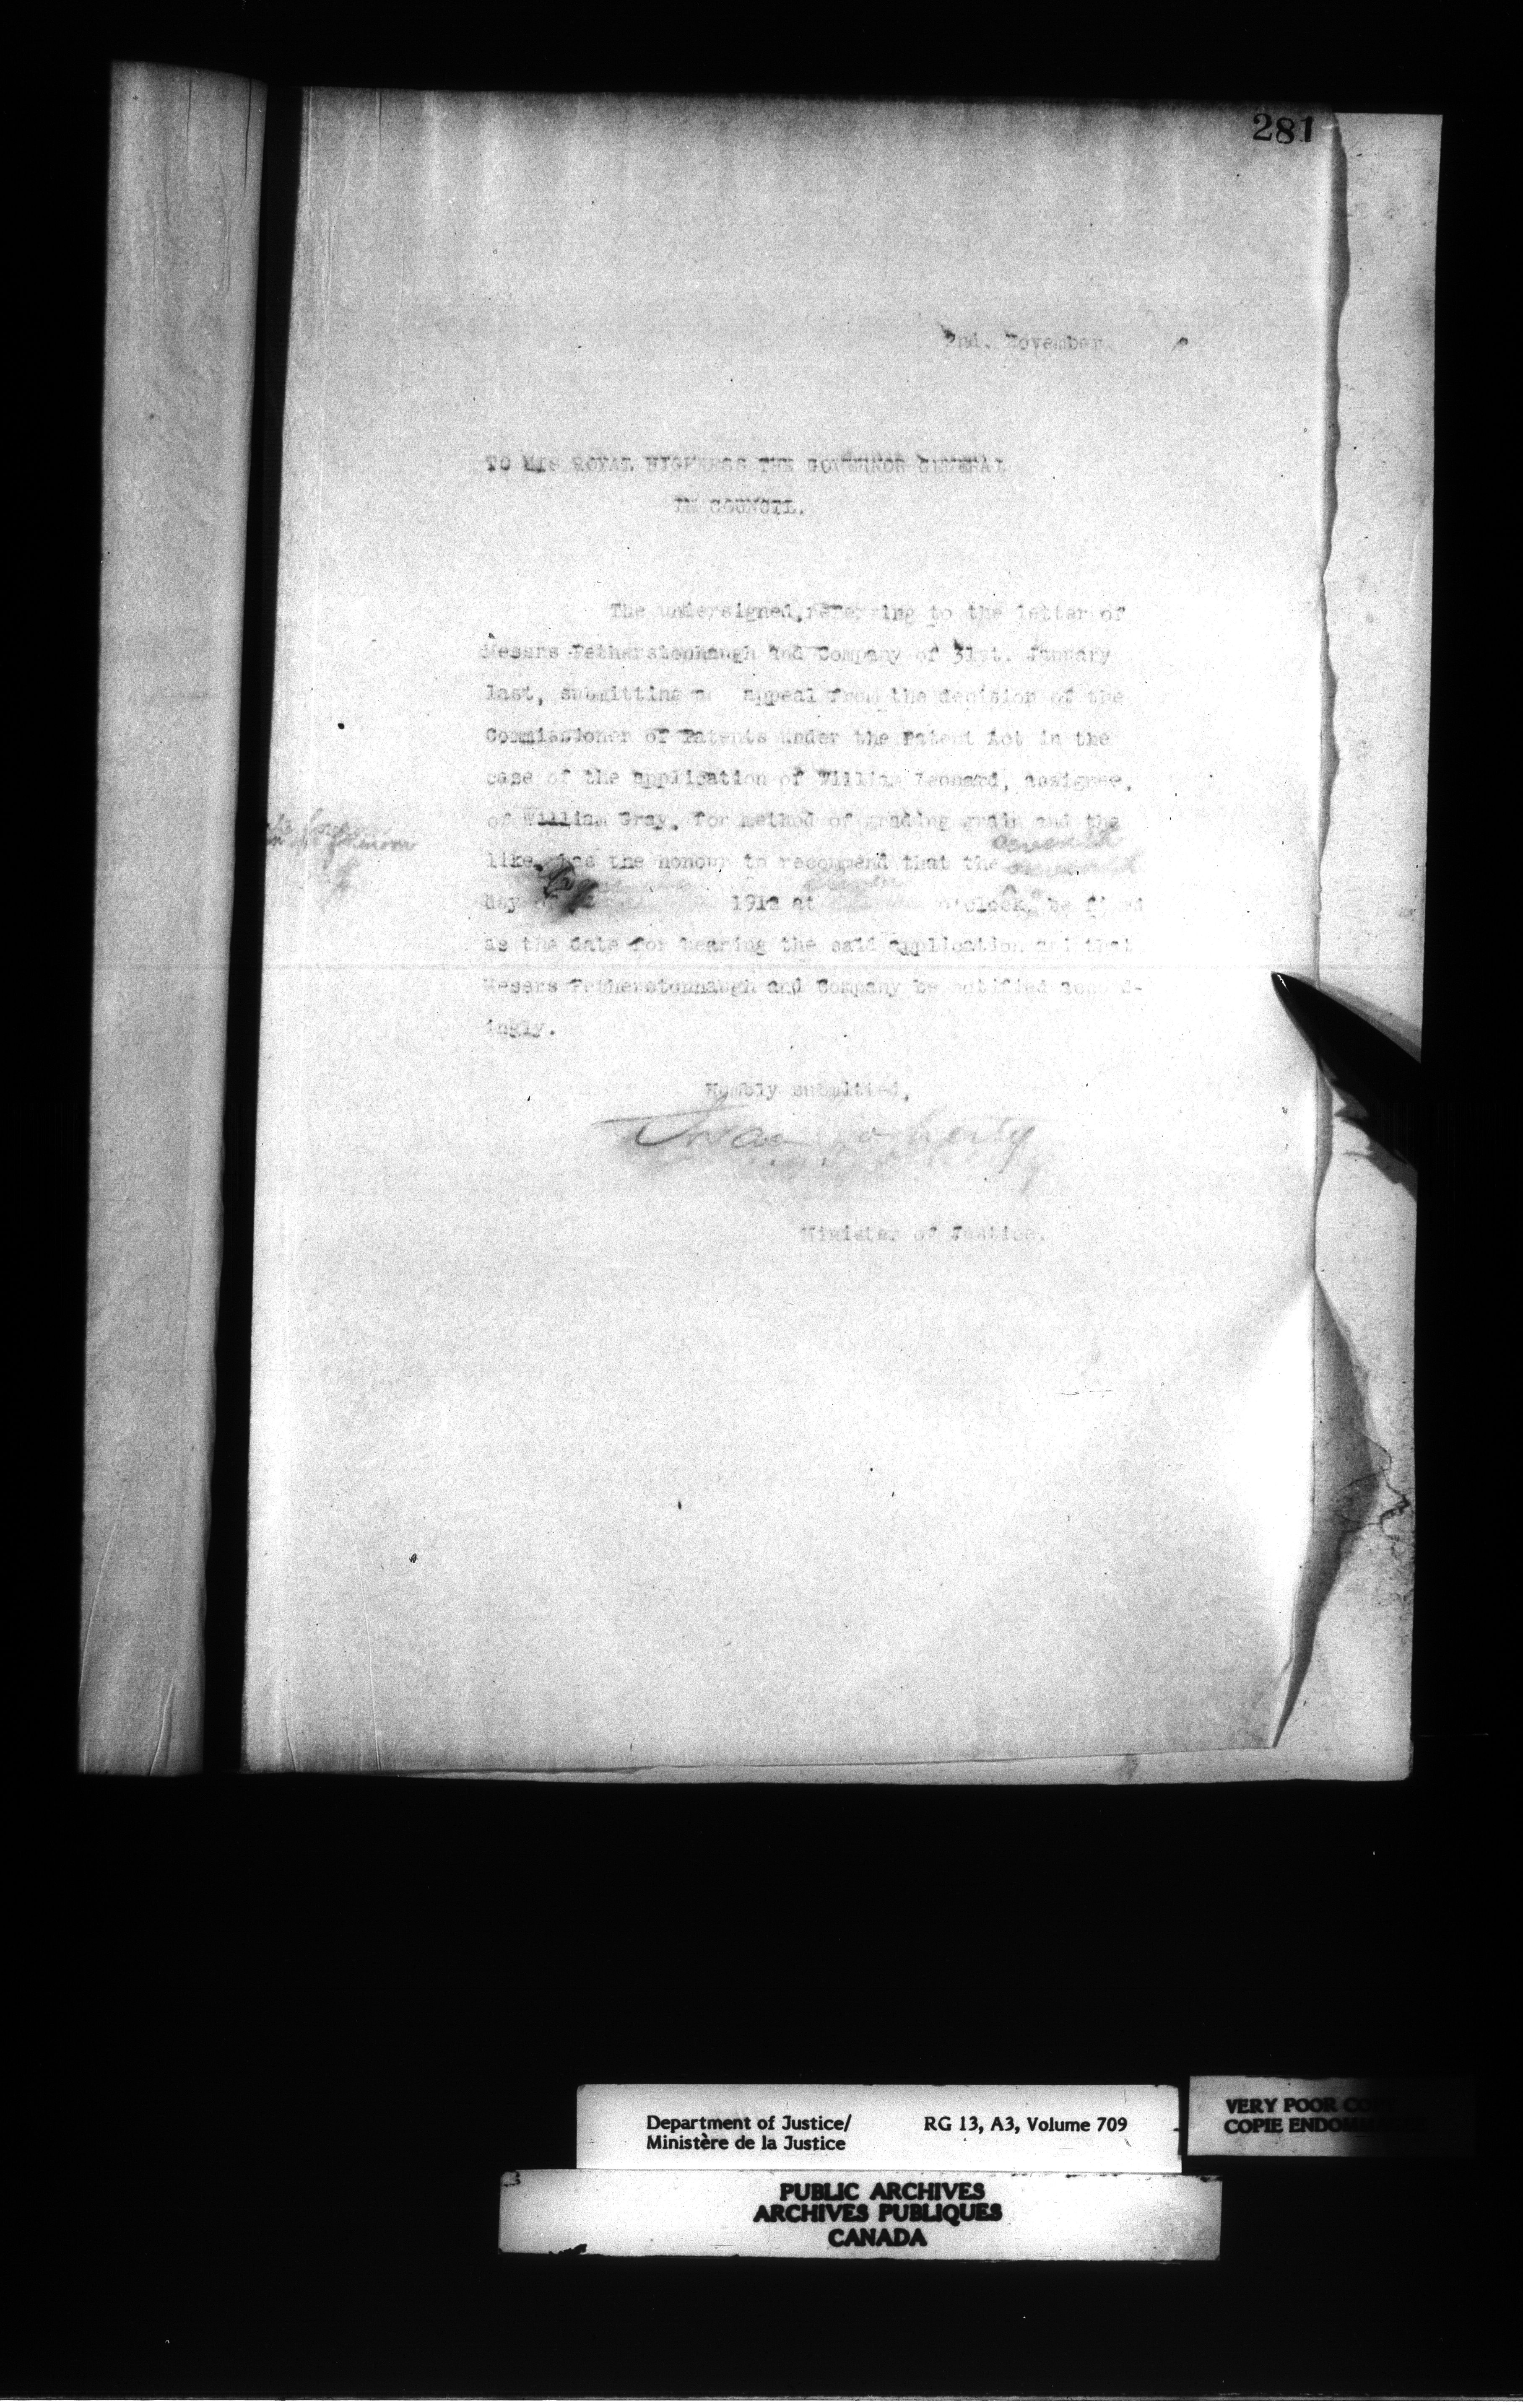 281
2nd. November
TO HIS ROYAL HIGHNESS THE GOVERNOR GENERAL
IN COUNCIL.
The undersigned, referring to the letter of
Messrs Fetherstonhaugh and Company of 31st. January
last, submitting an appeal from the decision of the
Commissioner of Patents under the Patent Act in the
case of the application of William Leonard, assignee,
of William Gray, for method of grading grain and the
like, has the honour to recommend that the
day of 1912 at o'clock, be fixed
as the date for hearing the said application and that
Messrs Fetherstonhaugh and Company be notified accord-
ingly.
Humbly submitted,
Doherty
Minister of Justice.
Department of Justice/ RG 13, A3, Volume 709
Ministère de la Justice
VERY POOR COPY
COPIE
PUBLIC ARCHIVES
ARCHIVES PUBLIQUES
CANADA